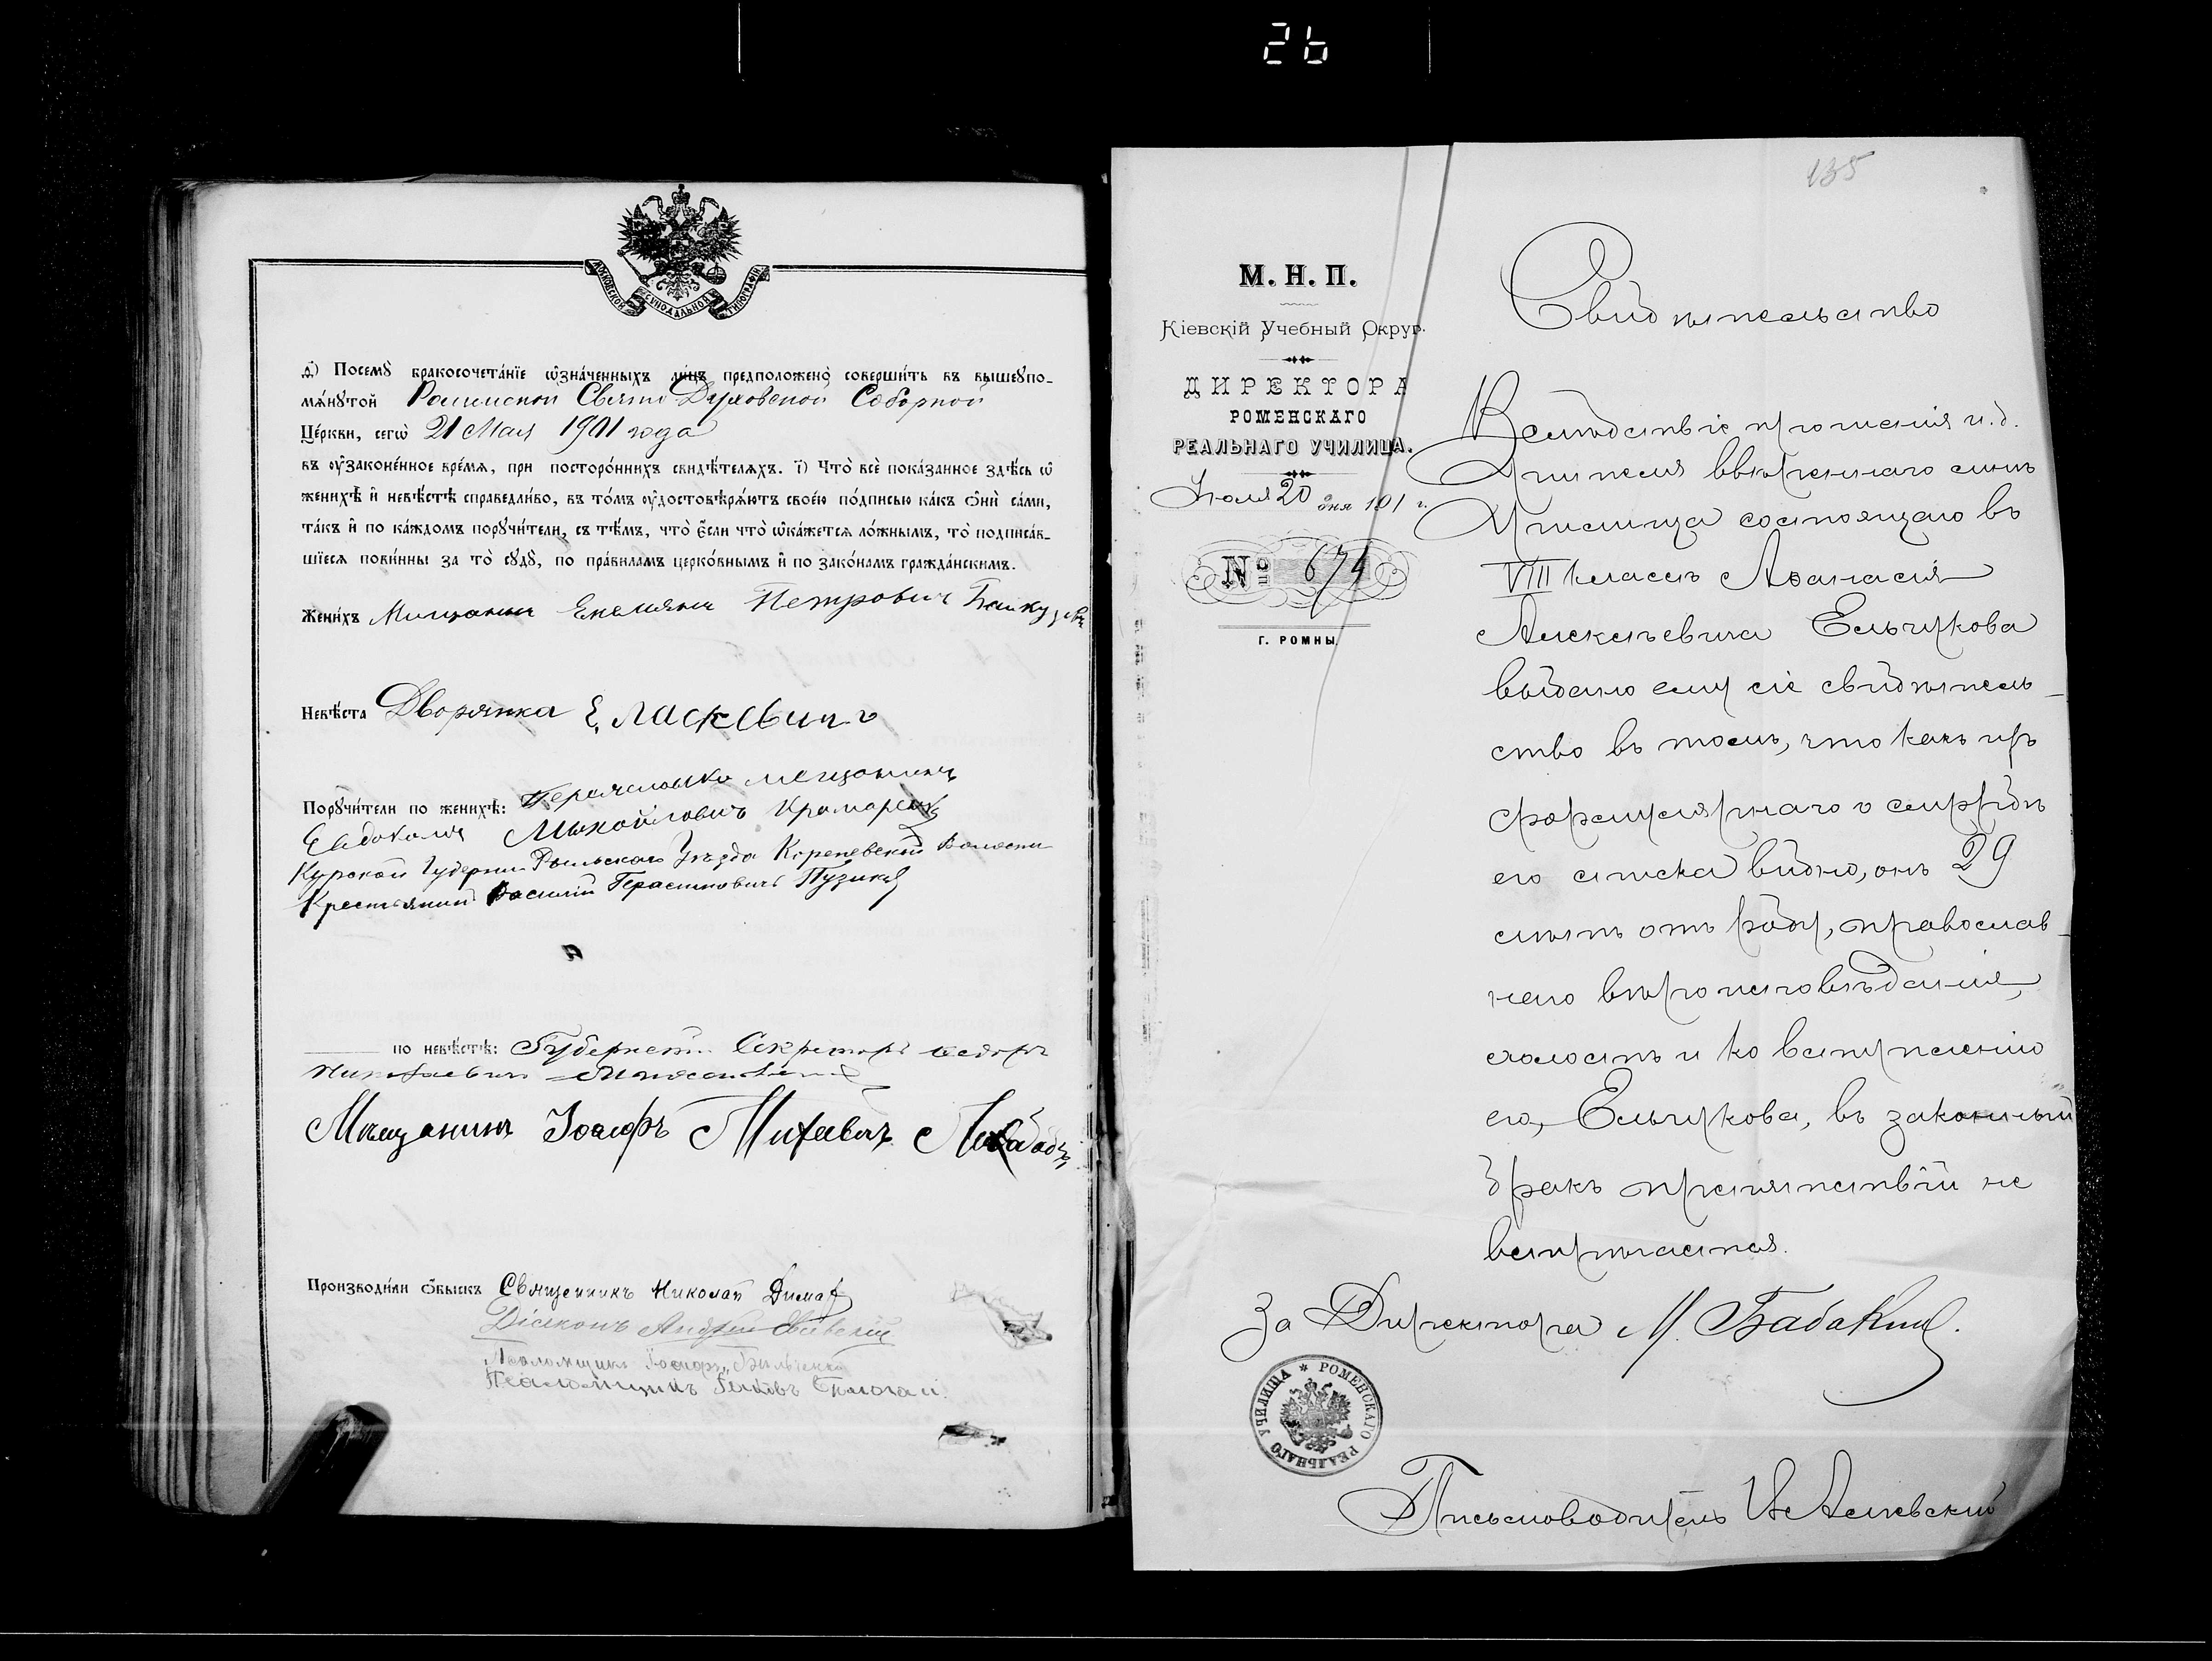 26
МОСКОВСКОЙ СѴНОДАЛЬНОЙ ТИПОГРАФІИ
д҃) Посемꙋ̀ бракосочета́нїе ѡ҆зна́ченныхъ ли́цъ предположено̀ соверши́ть въ вышеꙋпо-
мѧ́нꙋтой Роменской Свято Духовской Соборной
Це́ркви, сегѡ̀ 21 Мая 1901 года
въ ᲂу҆зако́ненное вре́мѧ, при посторо́ннихъ свидѣ́телѧхъ. і҃) Что̀ всѐ пока́занное здѣ́сь ѡ҆
женихѣ̀ и҆ невѣ́стѣ справедли́во, въ то́мъ ᲂу҆достовѣрѧ́ютъ свое́ю по́дписью ка́къ ѻ҆нѝ са́ми,
та́къ и҆ по ка́ждомъ порꙋчи́тели, съ тѣ́мъ, что̀ є҆́сли что̀ ѡ҆ка́жетсѧ ло́жнымъ, то̀ подписа́в-
шїесѧ пови́нны за то̀ сꙋдꙋ̀, по пра́виламъ церко́внымъ и҆ по зако́намъ гражда́нскимъ.
Жени́хъ Мищанинъ Емелянъ Петровичъ
Невѣ́ста Дворянка Е.
Порꙋчи́тели по женихѣ̀: мещанинъ
Евдокимъ
Курской Губерни Рыльскаго Уѣзда Кореневской Волости
Крестьянин Василий Герасимовичъ Пузиков
по невѣ́стѣ: Губернск. Секретарь
Николаевичъ
Мѣщанинъ Іосифъ Михеевичъ
Производи́ли ѻ҆́быскъ Священникъ Николай
Діаконъ Андрей
Псаломщикъ Іосифъ
Псаломщикъ Яковъ
135
М. Н. П.
Кіевскій Учебный Округ.
ДИРЕКТОРА
РОМЕНСКАГО
РЕАЛЬНАГО УЧИЛИЩА.
20 дня 1901 г.
№ 674
Г. РОМНЫ.
Свидѣтельство
Вслѣдствіе прошенія и. д.
Учителя ввѣреннаго мнѣ
Училища состоящаго въ
VIII классѣ Аѳанасія
Алексѣевича Ельчукова
выдано ему сіе свидѣтель-
ство въ томъ, что какъ изъ
формулярнаго о службѣ
его списка видно, онъ 29
лѣтъ отъ роду, православ-
наго вѣроисповѣданія,
холостъ и ко вступленію
его, Ельчукова, въ законный
бракъ препятствій не
встрѣчается.
За Директора М. Бабакин
РОМЕНСКАГО РЕАЛЬНАГО УЧИЛИЩА
Письмоводитель